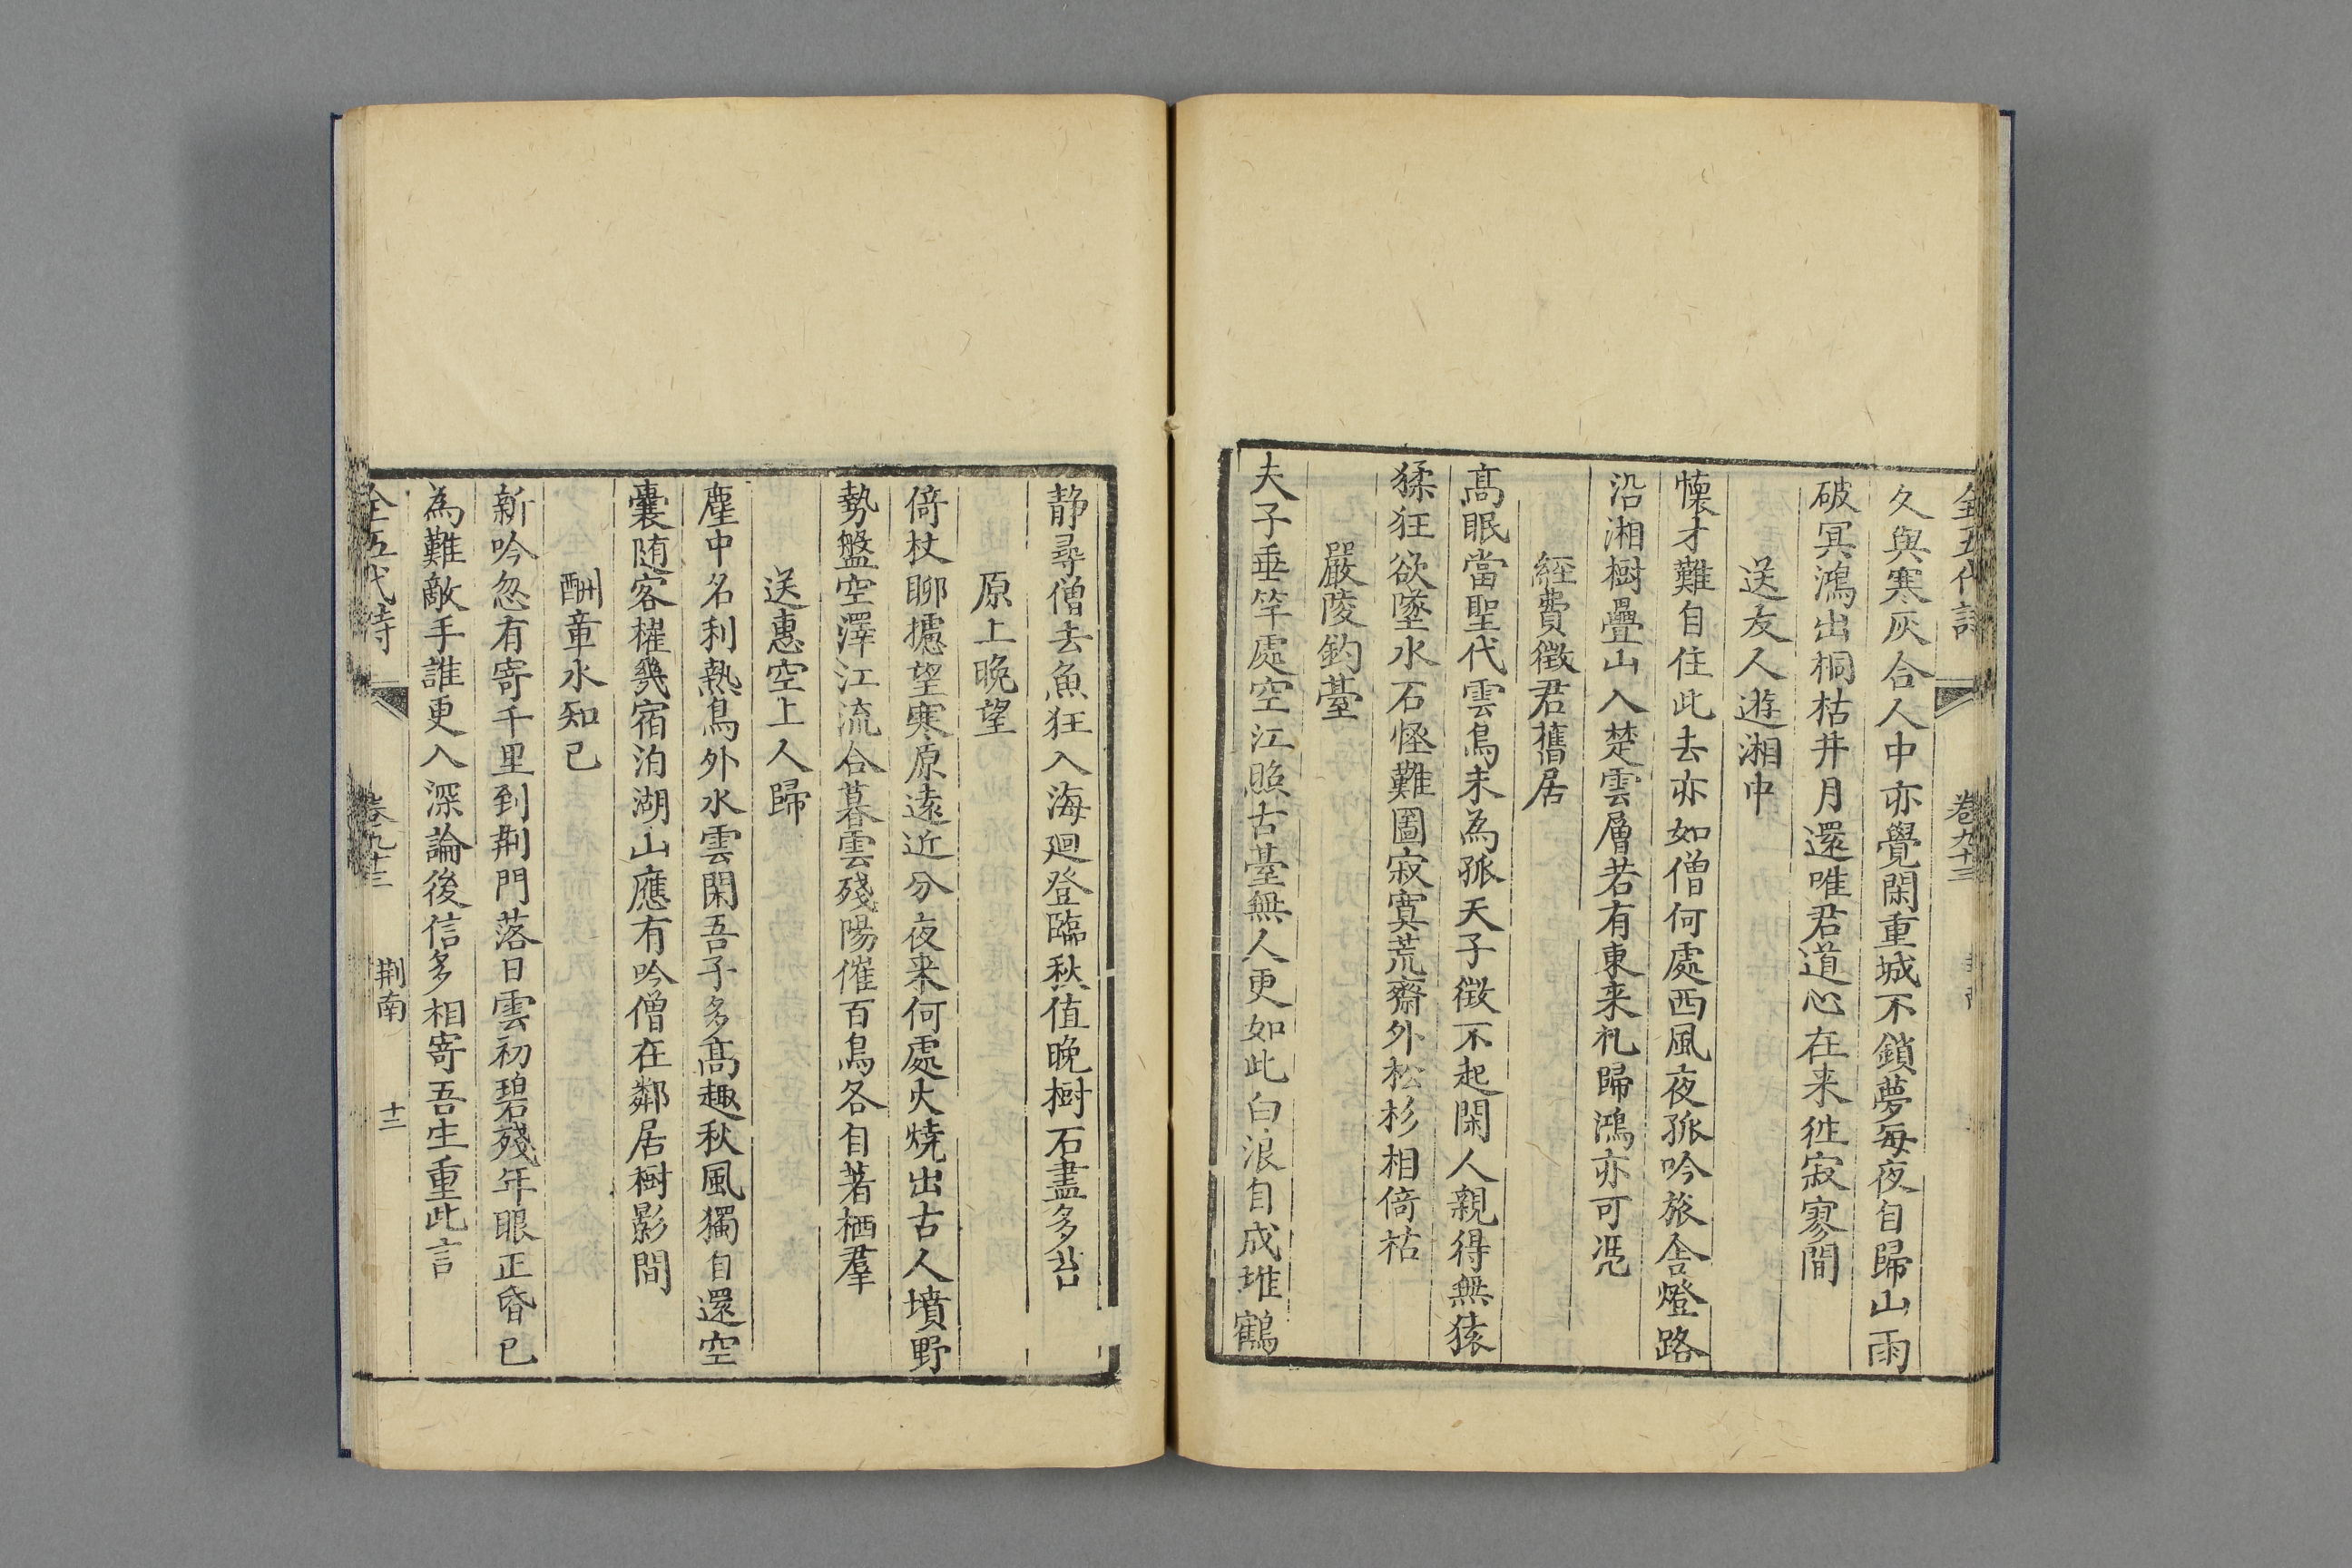 全五代詩 卷九十三
久與寒灰合人中亦覺閑重城不鎖夢每夜自歸山雨
破冥鴻出桐枯井月還唯君道心在来徃寂寥間
送友人遊湘中
懐才難自住此去亦如僧何處西風夜孤吟旅舍燈路
沿湘樹疊山入楚雲層若有東来札歸鴻亦可凴
經費徵君舊居
髙眠當聖代雲鳥未為孤天子徵不起閑人親得無猿
猱狂欲墜水石怪難圖寂寞荒齋外松杉相倚枯
嚴陵釣臺
夫子垂竿處空江照古臺無人更如此白浪自成堆鶴
静尋僧去魚狂入海廻登臨秋值晚樹石盡多苔
原上晚望
倚杖聊攄望寒原遠近分夜来何處火燒出古人墳野
勢盤空澤江流合暮雲殘陽催百鳥各自著栖羣
送惠空上人歸
塵中名利熱鳥外水雲閑吾子多髙趣秋風獨自還空
囊随客櫂幾宿泊湖山應有吟僧在鄰居樹影間
酬章水知己
新吟忽有寄千里到荆門落日雲初碧殘年眼正昏已
為難敵手誰更入深論後信多相寄吾生重此言
全五代詩 卷九十三 荆南 十三